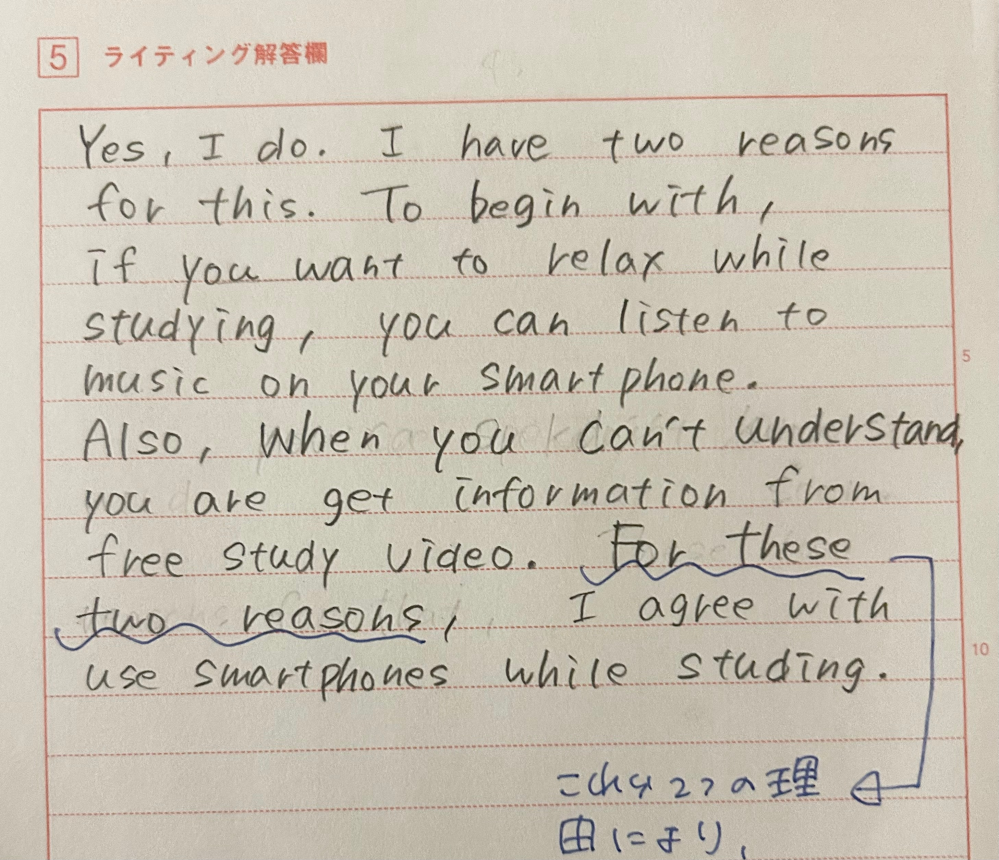 5 ライティング解答欄
Yes, I do. I have two reasons
for this. To begin with,
if you want to relax while
studying, you can listen to
music on your smartphone.
Also, when you can't understand,
you are get information from
free study video. For these
two reasons, I agree with
use smartphones while studing.
5
10
これら2つの理
由により、